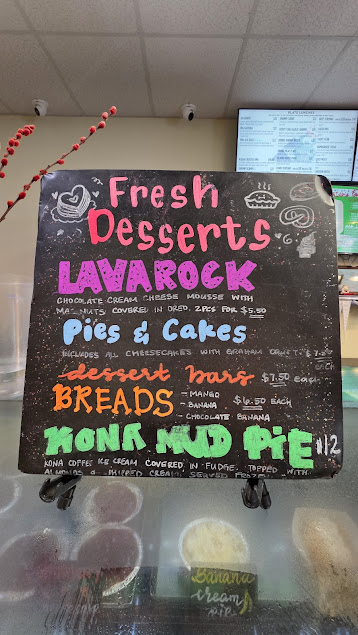 PLATE LUNCHES
Fresh
Desserts
LAVAROCK
CHOCOLATE CREAM CHEESE MOUSSE WITH
MAC NUTS COVERED IN OREO. 2PCS FOR $5.50
Pies & Cakes
INCLUDES ALL CHEESECAKES WITH GRAHAM CRUST.
dessert bars $7.50 each
BREADS - MANGO $6.50 EACH
- BANANA
- CHOCOLATE BANANA
KONA MUD PiE $12
KONA COFFEE ICE CREAM COVERED IN FUDGE. TOPPED WITH
ALMONDS & WHIPPED CREAM. SERVED FROZEN
Banana
cream
pie